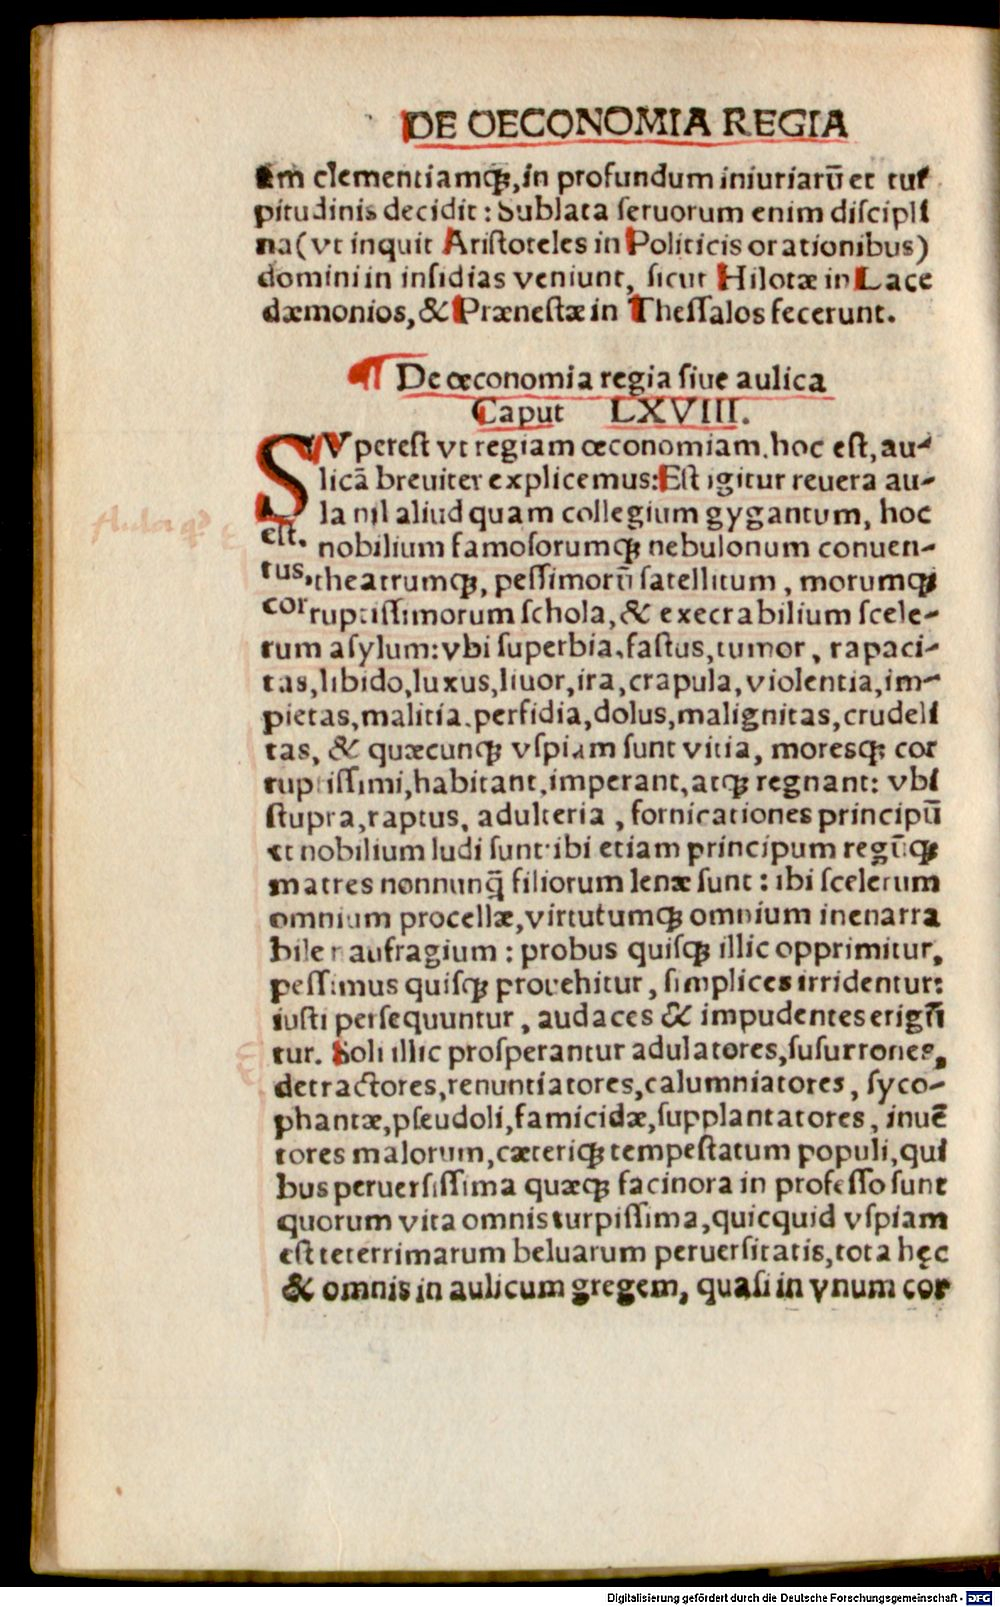 DE OECONOMIA REGIA
em clementiamq;, in profundum iniuriarū et tur
pitudinis decidit: Sublata seruorum enim discipli
na (vt inquit Aristoteles in Politicis orationibus)
domini in insidias veniunt, sicut Hilotæ in Lace
dæmonios, & Prænestæ in Thessalos fecerunt.
¶ De œconomia regia siue aulica
Caput LXVIII.
SVperest vt regiam œconomiam, hoc est, au-
licā breuiter explicemus: Est igitur reuera au-
la nil aliud quam collegium gygantum, hoc
est. nobilium famosorumq; nebulonum conuen-
tus, theatrumq;, pessimorū satellitum, morumq;
corruptissimorum schola, & execrabilium scele-
rum asylum: vbi superbia, fastus, tumor, rapaci-
tas, libido, luxus, liuor, ira, crapula, violentia, im-
pietas, malitia, perfidia, dolus, malignitas, crudeli
tas, & quæcunq; vspiam sunt vitia, moresq; cor
ruptissimi, habitant, imperant, atq; regnant: vbi
stupra, raptus, adulteria, fornicationes principū
et nobilium ludi sunt: ibi etiam principum regūq;
matres nonnunq̄ filiorum lenæ sunt: ibi scelerum
omnium procellæ, virtutumq; omnium inenarra
bile naufragium: probus quisq; illic opprimitur,
pessimus quisq; prouehitur, simplices irridentur:
iusti persequuntur, audaces & impudentes erigū
tur. Soli illic prosperantur adulatores, susurrones,
detractores, renuntiatores, calumniatores, syco-
phantæ, pseudoli, famicidæ, supplantatores, inuē
tores malorum, cæteriq; tempestatum populi, qui
bus peruersissima quæq; facinora in professo sunt
quorum vita omnis turpissima, quicquid vspiam
est teterrimarum beluarum peruersitatis, tota hęc
& omnis in aulicum gregem, quasi in vnum cor
Digitalisierung gefördert durch die Deutsche Forschungsgemeinschaft - DFG